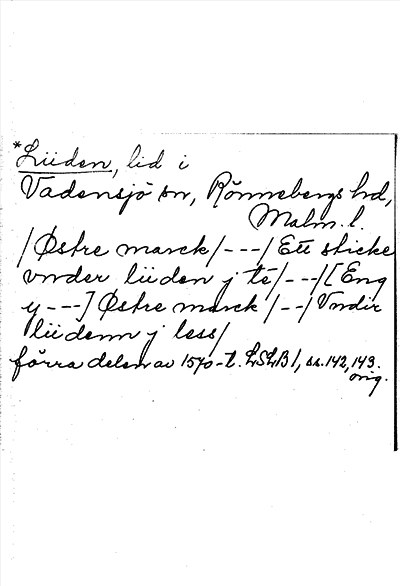 *Liiden, lid i
Vadensjö sn, Rönnebergs hd,
Malm. l.
/Østre marck/---/Ett sticke
vnder liiden j té/---/[Eng
y---] Østre marck/--/Vndir
liidenn j less/
förra delen av 1570-t. LSLB 1, ss. 142, 143.
orig.